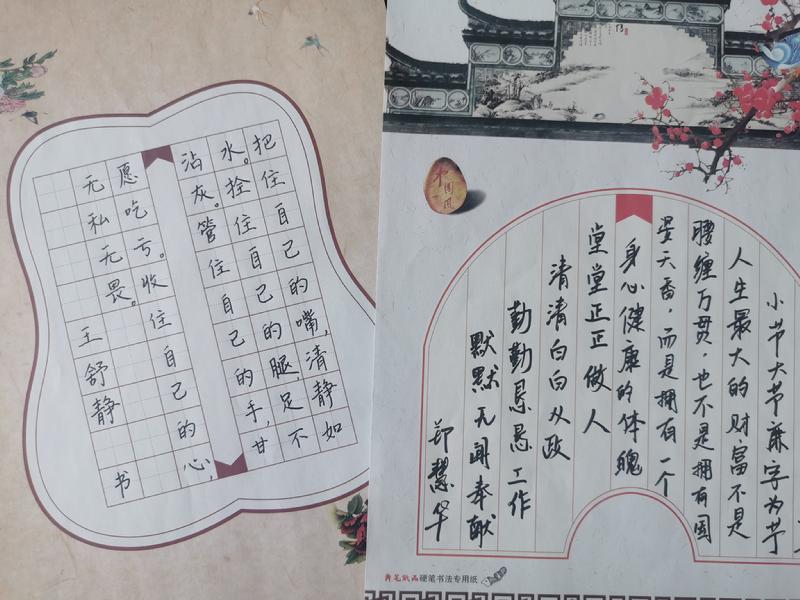 把住自己的嘴,清静如
水。拴住自己的腿,足不
沾灰。管住自己的手,甘
愿吃亏。收住自己的心,
无私无畏。王舒静 书
中国风
小节大节廉字为节
人生最大的财富不是
腰缠万贯,也不是拥有国
色天香,而是拥有一个
身心健康的体魄
堂堂正正做人
清清白白从政
勤勤恳恳工作
默默无闻奉献
郑慧华
硬笔书法专用纸